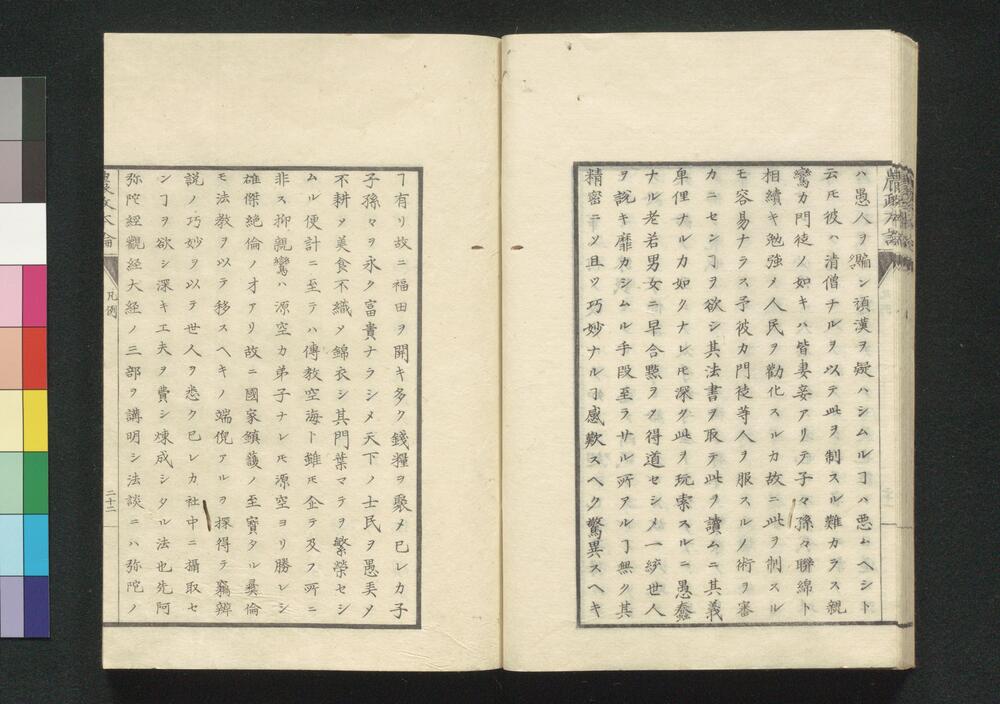 ハ愚人ヲ騙シ頑漢ヲ凝ハシムルヿハ悪ムヘシト
云𪜈彼ハ清僧ナルヲ以テ此ヲ制スル難カラス親
鸞カ門徒ノ如キハ皆妻妾アリテ子々孫々聯綿ト
相續キ勉強メ人民ヲ勸化スルカ故ニ此ヲ制スル
モ容易ナラス予彼カ門徒等人ヲ服スルノ術ヲ審
カニセンヿヲ欲シ其法書ヲ取テ此ヲ讀ムニ其義
卑俚ナルカ如クナレ𪜈深ク此ヲ玩索スルニ愚蠢
ナル老若男女ニ早合點ヲメ得道セシメ一統世人
ヲ説キ靡カシムル手段至ラサル所アルヿ無ク其
精密ニシ且ツ巧妙ナルヿ感歎スヘク驚異スヘキ
ヿ有リ故ニ福田ヲ開キ多ク錢糧ヲ聚メ已レカ子
子孫々ヲ永ク富貴ナラシメ天下ノ士民ヲ愚弄メ
不耕メ美食不織メ錦衣シ其門葉マテヲ繁榮セシ
ムル便計ニ至テハ傳教空海ト雖モ企テ及フ所ニ
非ス抑親鸞ハ源空カ弟子ナレ𪜈源空ヨリ勝レシ
雄傑絶倫ノ才アリ故ニ國家鎮護ノ至寳タル彛倫
モ法教ヲ以テ移スヘキノ端倪アルヲ探得テ竊辨
説ノ巧妙ヲ以テ世人ヲ悉ク已レカ社中ニ攝取セ
ンヿヲ欲シ深キ工夫ヲ費シ煉成シタル法也先阿
弥陀經觀経大経ノ三部ヲ講明シ法談ニハ弥陀ノ
凡例
二十二